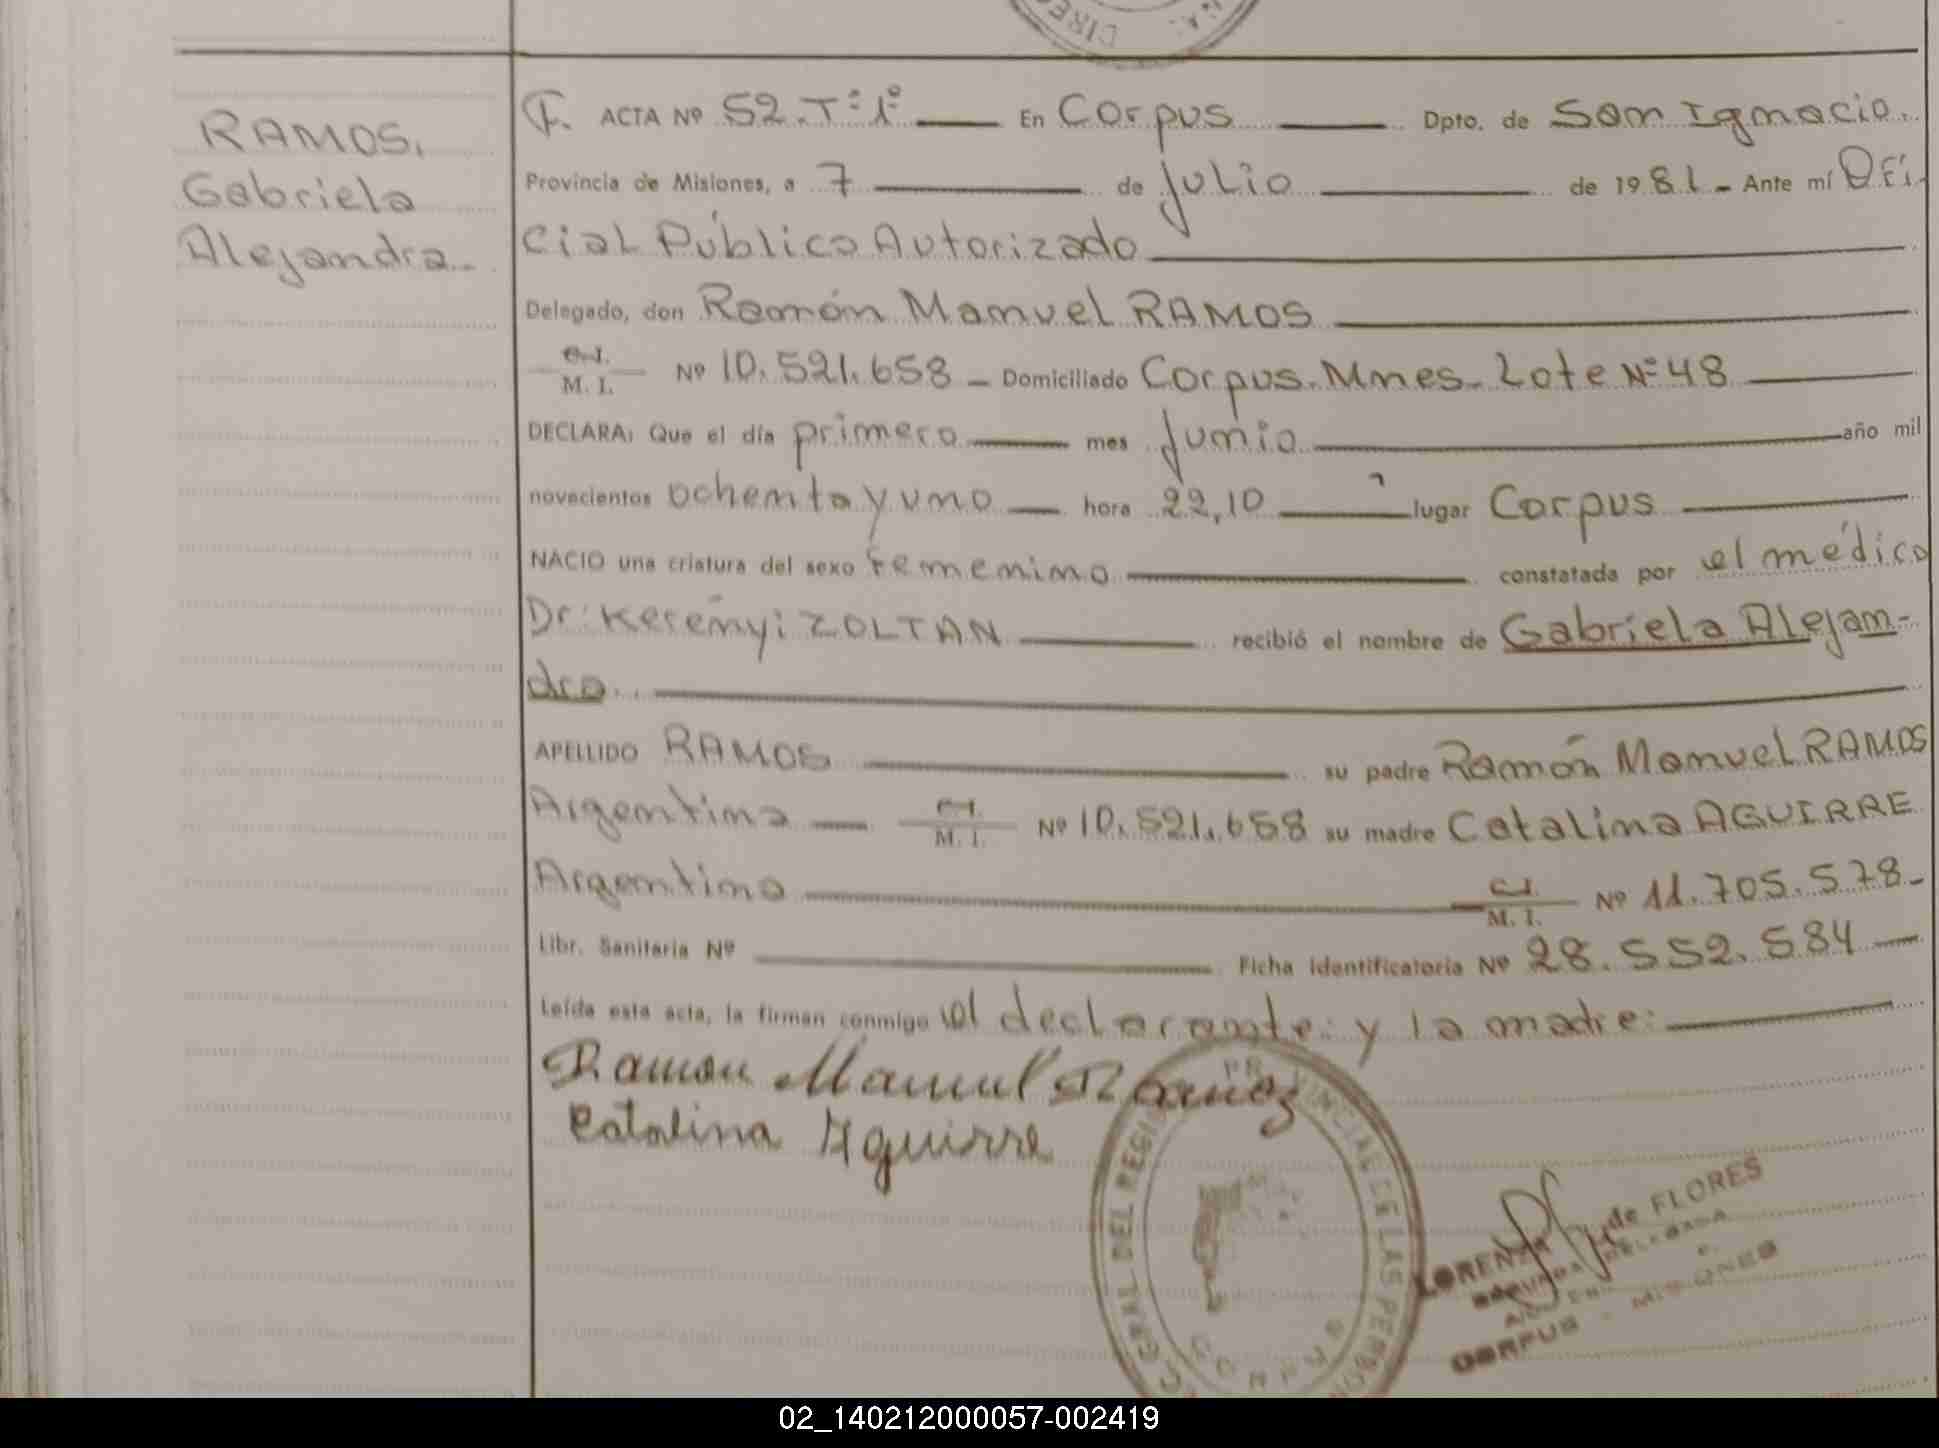 DIREC
RAMOS,
Gabriela
Alejandra_
F. ACTA Nº 52.Tº1º En Corpus Dpto. de San Ignacio.
Provincia de Misiones, a 7 de julio de 1981 - Ante mí Ofi-
cial Público Autorizado
Delegado, don Ramón Manuel RAMOS
C.I. M. I. Nº 10.521.658 - Domiciliado Corpus. Mnes- Lote Nº 48
DECLARA: Que el día primero mes junio año mil
novecientos ochenta y uno hora 22,10 lugar Corpus
NACIO una criatura del sexo femenino constatada por el médico
Dr: Kerényi ZOLTAN recibió el nombre de Gabriela Alejan-
dra.
APELLIDO RAMOS su padre Ramón Manuel RAMOS
Argentina C.I. M. I. Nº 10.521.658 su madre Catalina AGUIRRE
Argentina C.I. M. I. Nº 11.705.578-
Libr. Sanitaria Nº Ficha Identificatoria Nº 28.552.584
Leída esta acta, la firman conmigo el declarante: y la madre:
Ramon Manuel Ramos
Catalina Aguirre
PROVINCIAL DE LAS PERSON
GRAL DEL REGIS
CORPUS
LORENZA de FLORES
DELEGADA
CORPUS - MISIONES
02_140212000057-002419